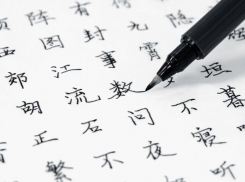 阵 有
图 封 九
郊 江 事 霄 隐
胡 流 数 垣
正 石 问 不 暮
繁 不 夜 寝 听